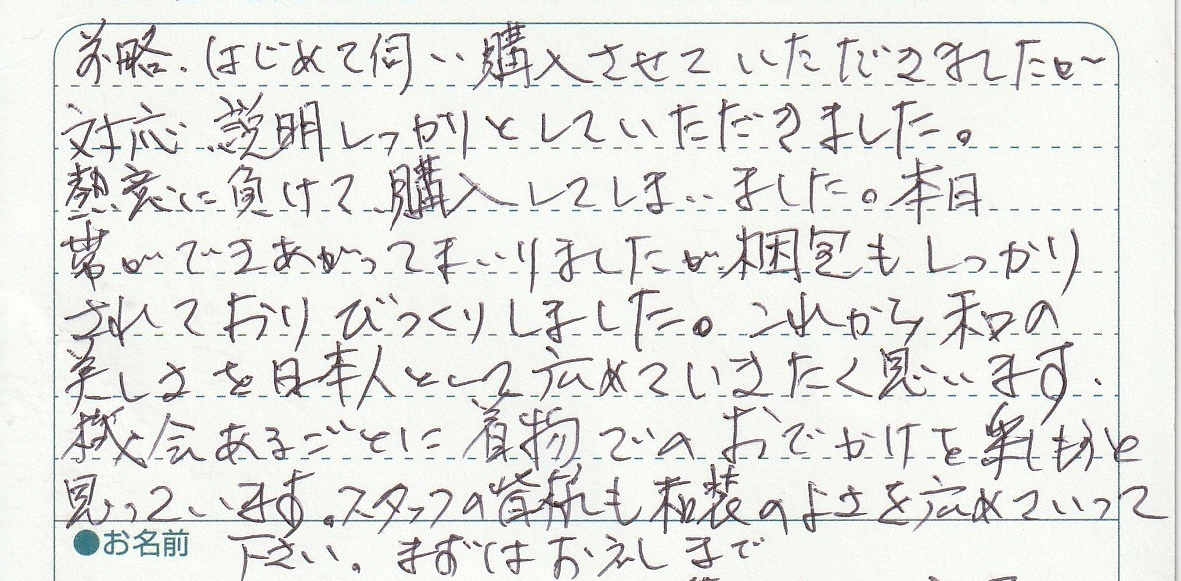 前略、はじめて伺い購入させていただきましたが
対応、説明しっかりとしていただきました。
熱意に負けて、購入してしまいました。本日
帯ができあがってまいりましたが、梱包もしっかり
されておりびっくりしました。これから和の
美しさを日本人として広めていきたく思います.
機会あるごとに着物でのおでかけを楽しもうと
思っています。スタッフの皆様も和装のよさを広めていって
下さい。まずはお礼まで
●お名前